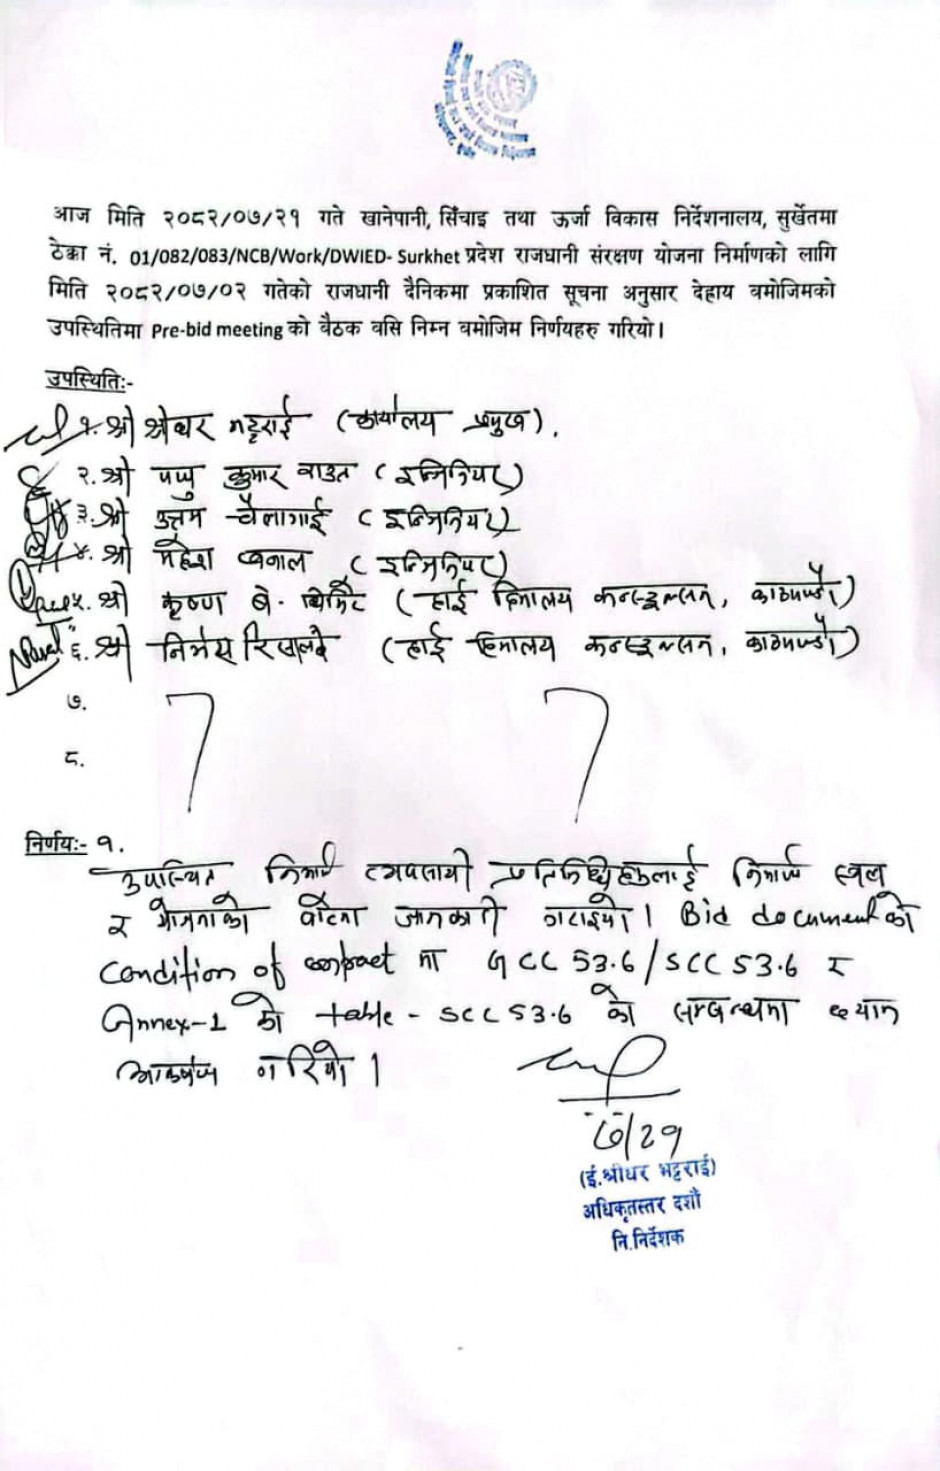 आज मिति २०८२/०७/२१ गते खानेपानी, सिंचाइ तथा ऊर्जा विकास निर्देशनालय, सुर्खेतमा
ठेक्का नं. 01/082/083/NCB/Work/DWIED- Surkhet प्रदेश राजधानी संरक्षण योजना निर्माणको लागि
मिति २०८२/०७/०२ गतेको राजधानी दैनिकमा प्रकाशित सूचना अनुसार देहाय वमोजिमको
उपस्थितिमा Pre-bid meeting को वैठक वसि निम्न वमोजिम निर्णयहरु गरियो।
उपस्थितिः-
१. श्री श्रीधर भट्टराई (कार्यालय प्रमुख).
२. श्री पप्पु कुमार राउत (इन्जिनियर)
३. श्री उत्तम चौलागाई (इन्जिनियर)
४. श्री महेश खनाल (इन्जिनियर)
५. श्री कृष्ण बे. घिमिरे (हाई हिमालय कन्स्ट्रक्सन, काठमाण्डौ)
६. श्री निमेस रिसाल (हाई हिमालय कन्स्ट्रक्सन, काठमाण्डौ)
७.
८.
निर्णयः- १.
उपस्थित निर्माण व्यवसायी प्रतिनिधिहरुलाई निर्माण स्थल
र योजनाको बारेमा जानकारी गराइयो। Bid document को
Condition of contract मा GCC 53.6/SCC 53.6 र
Annex-1 को table - SCC 53.6 को सम्बन्धमा ध्यान
आकर्षण गरियो।
७/२१
(ई.श्रीधर भट्टराई)
अधिकृतस्तर दशौं
नि.निर्देशक